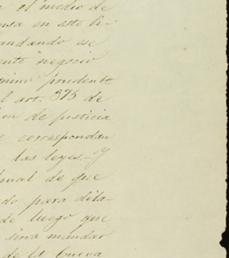 el medio de
en este li-
andando se
negocio
prudente
l art. 375 de
de justicia
correspondan
las leyes.- Y
nal de que
do para dila-
de luego que
sirva mandar
de la nueva